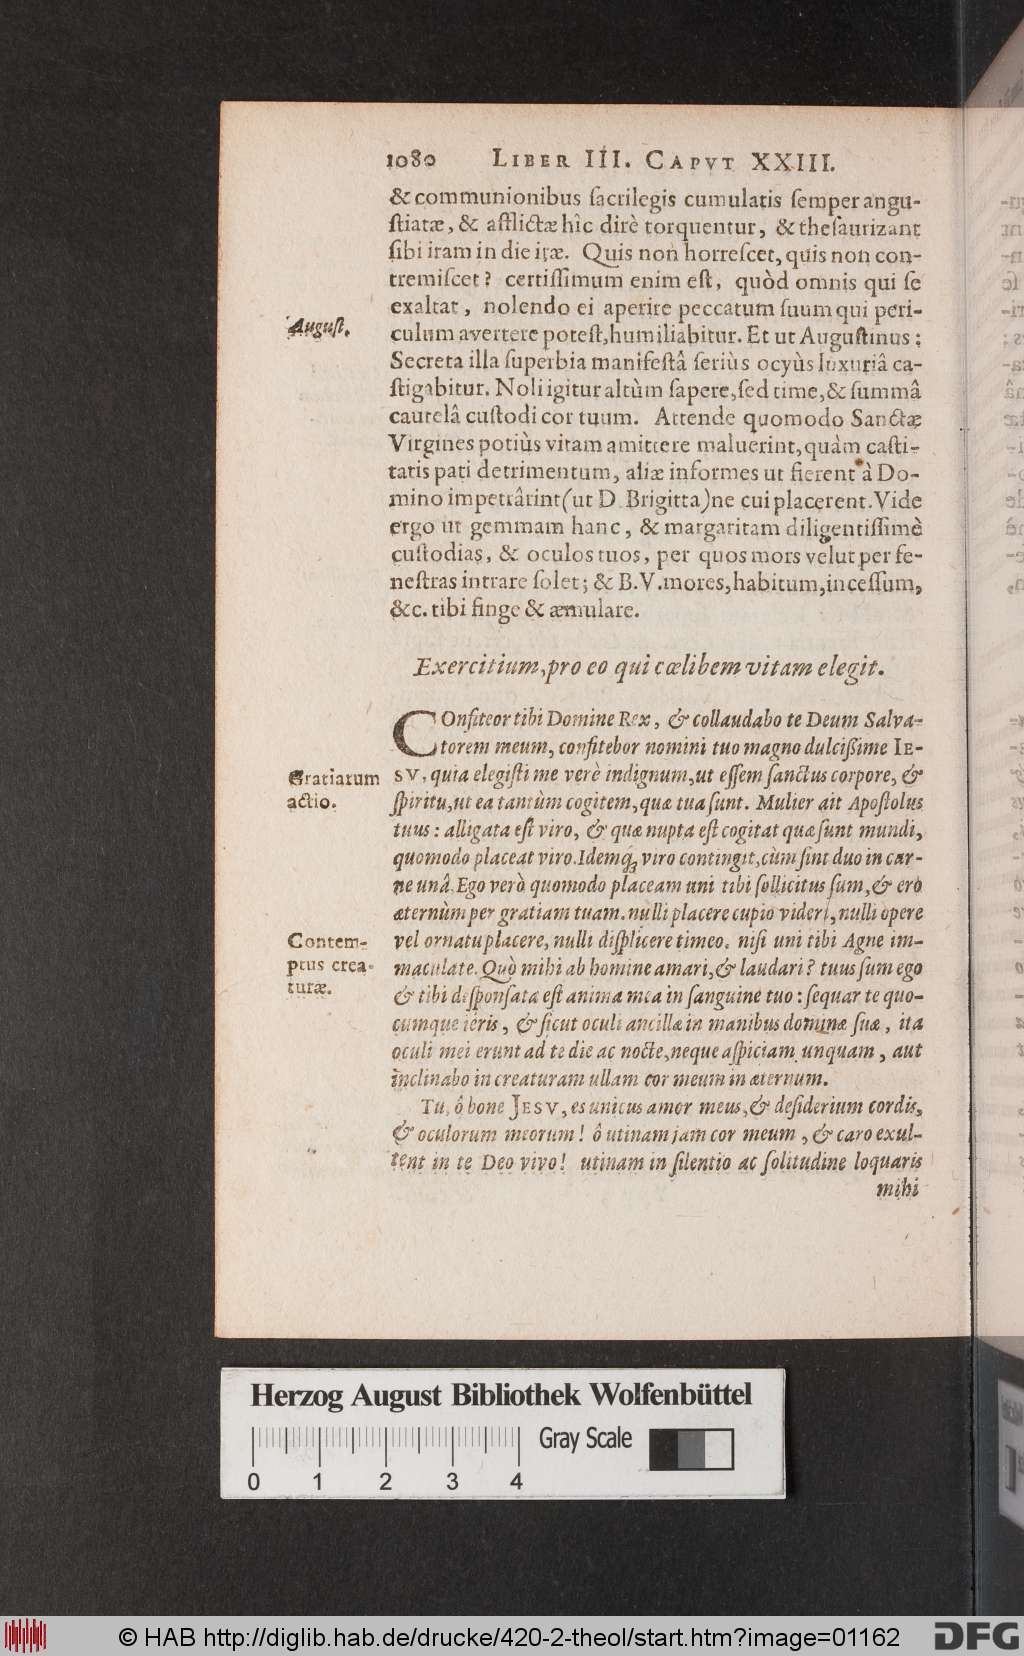 1080 LIBER III. CAPVT XXIII.
& communionibus ſacrilegis cumulatis ſemper angu-
ſtiatæ, & afflictæ hîc dirè torquentur, & theſaurizant
ſibi iram in die iræ. Quis non horreſcet, quis non con-
tremiſcet? certiſſimum enim eſt, quòd omnis qui ſe
exaltat, nolendo ei aperire peccatum ſuum qui peri-
Auguſt.
culum avertere poteſt, humiliabitur. Et ut Auguſtinus:
Secreta illa ſuperbia manifeſtâ ſeriùs ocyùs luxuriâ ca-
ſtigabitur. Noli igitur altùm ſapere, ſed time, & ſummâ
cautelâ cuſtodi cor tuum. Attende quomodo Sanctæ
Virgines potiùs vitam amittere maluerint, quàm caſti-
tatis pati detrimentum, aliæ informes ut fierent à Do-
mino impetrârint (ut D. Brigitta) ne cui placerent. Vide
ergo ut gemmam hanc, & margaritam diligentiſſimè
cuſtodias, & oculos tuos, per quos mors velut per fe-
neſtras intrare ſolet; & B. V. mores, habitum, inceſſum,
&c. tibi finge & æmulare.
Exercitium, pro eo qui cœlibem vitam elegit.
COnfiteor tibi Domine Rex, & collaudabo te Deum Salva-
torem meum, confitebor nomini tuo magno dulcißime IE-
Gratiarum
actio.
SV, quia elegiſti me verè indignum, ut eſſem ſanctus corpore, &
ſpiritu, ut ea tantùm cogitem, quæ tua ſunt. Mulier ait Apoſtolus
tuus: alligata eſt viro, & quæ nupta eſt cogitat quæ ſunt mundi,
quomodo placeat viro. Idemq́; viro contingit, cùm ſint duo in car-
ne unâ. Ego verò quomodo placeam uni tibi ſollicitus ſum, & ero
æternùm per gratiam tuam. nulli placere cupio videri, nulli opere
Contem-
ptus crea-
turæ.
vel ornatu placere, nulli diſplicere timeo. niſi uni tibi Agne im-
maculate. Quò mihi ab homine amari, & laudari? tuus ſum ego
& tibi deſponſata eſt anima mea in ſanguine tuo: ſequar te quo-
cumque ieris, & ſicut oculi ancillæ in manibus dominæ ſuæ, ita
oculi mei erunt ad te die ac nocte, neque aſpiciam unquam, aut
inclinabo in creaturam ullam cor meum in æternum.
Tu, ô bone JESV, es unicus amor meus, & deſiderium cordis,
& oculorum meorum! ô utinam jam cor meum, & caro exul-
tent in te Deo vivo! utinam in ſilentio ac ſolitudine loquaris
mihi
Herzog August Bibliothek Wolfenbüttel
Gray Scale
0 1 2 3 4
© HAB http://diglib.hab.de/drucke/420-2-theol/start.htm?image=01162
DFG